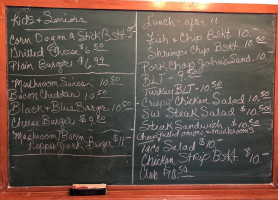 Kids & Seniors
Corn Dog on a Stick Bskt
Grilled Cheese $6.50
Plain Burger $6.99
Mushroom Swiss 10.50
Bacon Cheddar 10.50
Black & Blue Burger 10.50
Cheese Burger $9.50
Mushroom/Bacon
Pepper Jack Burger $11
Lunch - after 11
Fish & Chip Bskt 10.50
Shrimp & Chip Bskt 10.50
Pork Chop John's Sand. 10.50
BLT - 9.50
Turkey BLT - 10.50
Crispy Chicken Salad 10.50
SW Steak Salad $10.50
Steak Sandwich $10.50
Grilled onions & mushrooms
Taco Salad $10-
Chicken Strip Bskt $10-
Club $10.50